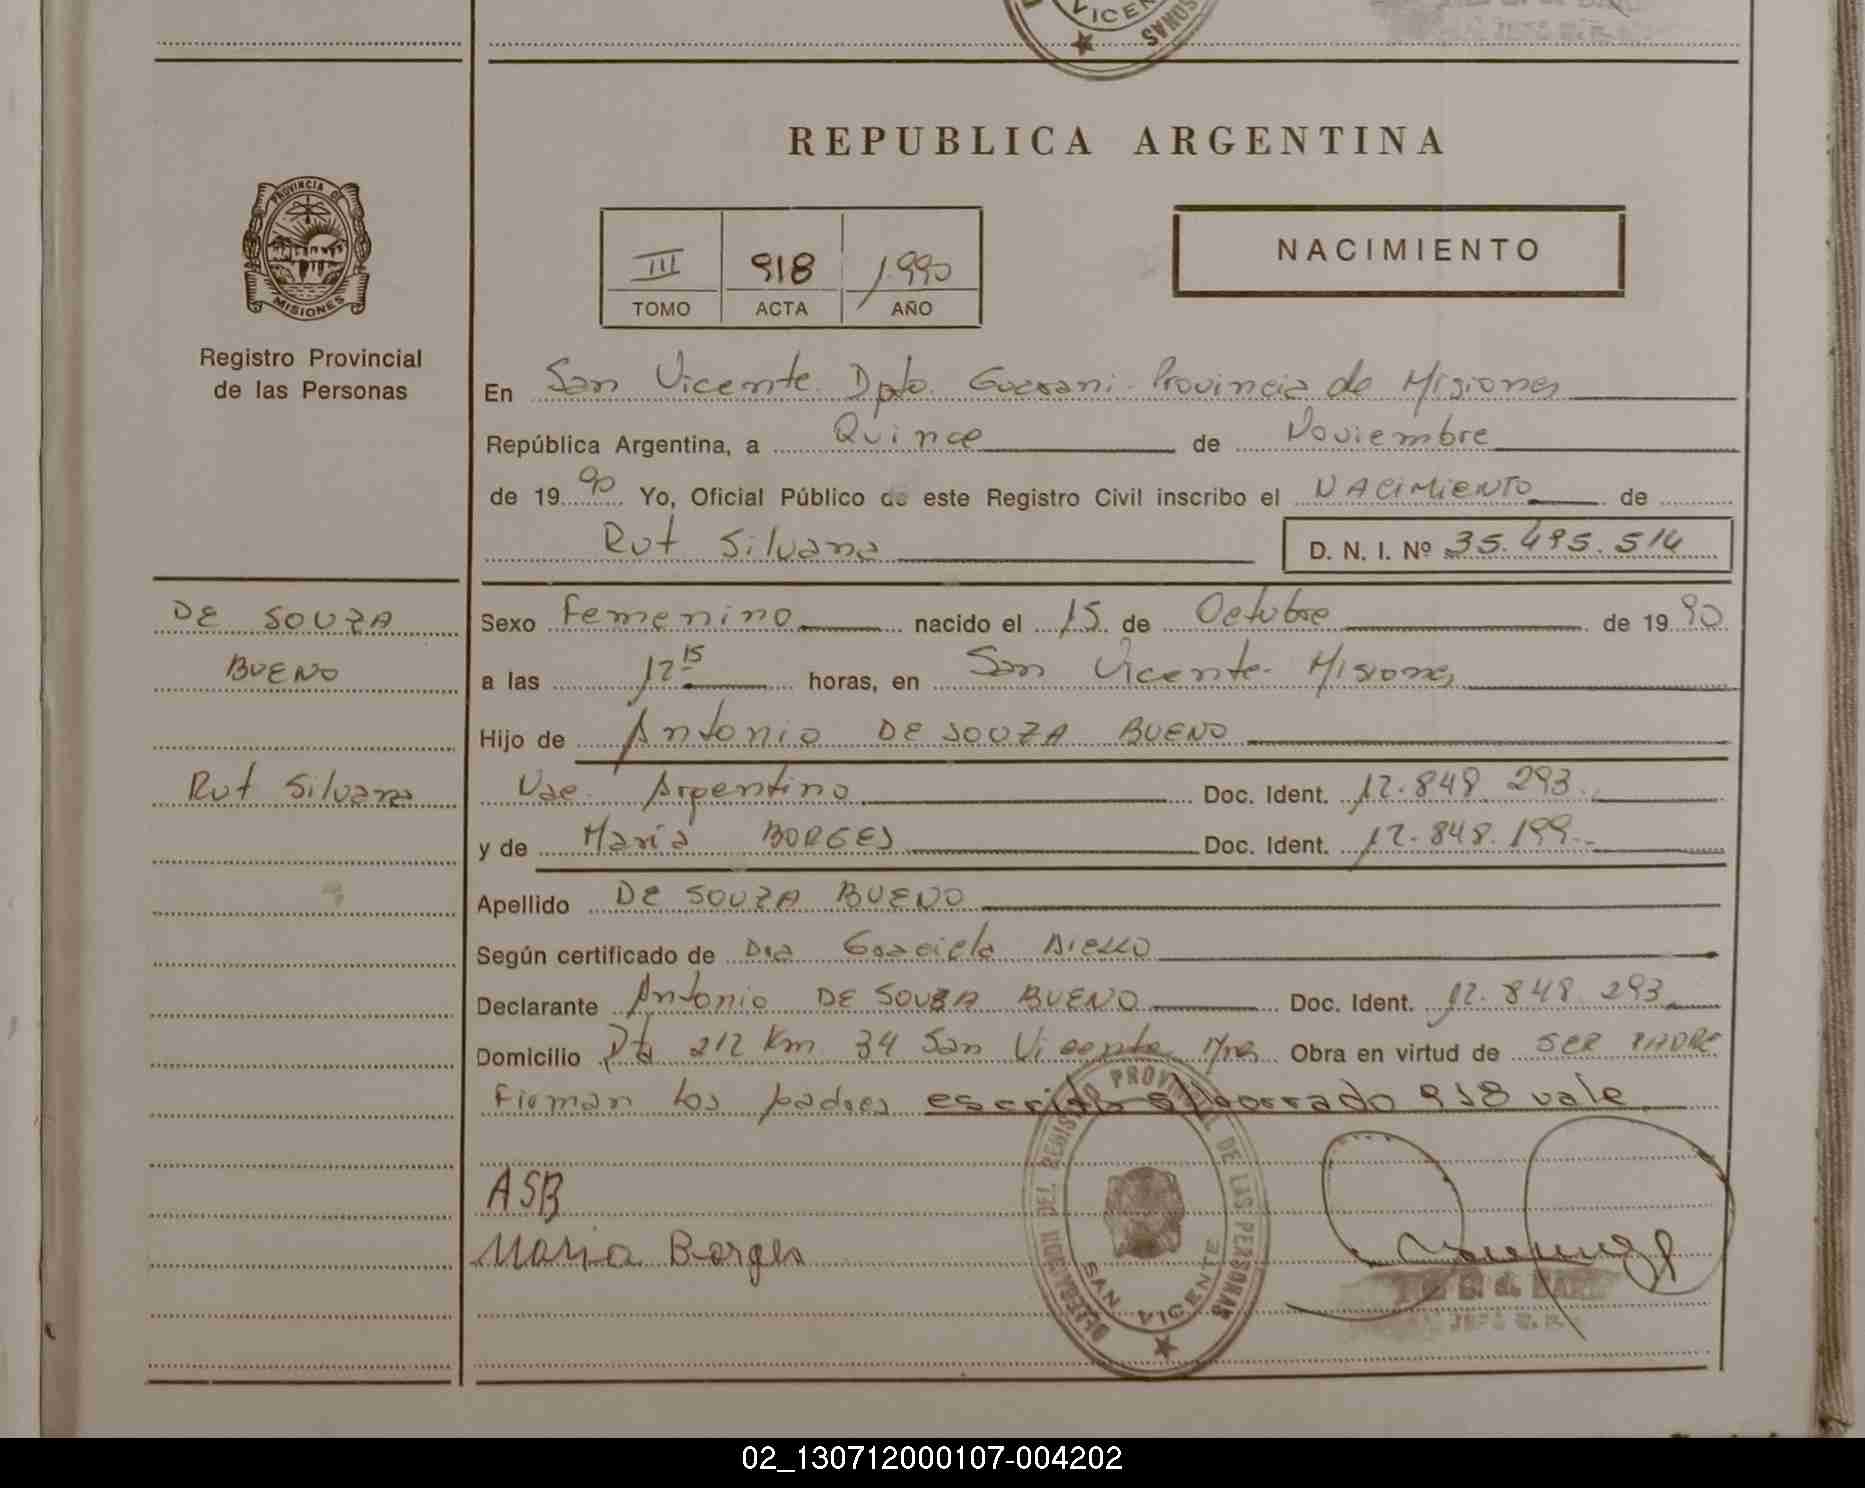 VICEN
SONAS
REPUBLICA ARGENTINA
PROVINCIA DE
MISIONES
III 918 1990
TOMO ACTA AÑO
NACIMIENTO
Registro Provincial
de las Personas
En San Vicente Dpto. Guarani - Provincia de Misiones
República Argentina, a Quince de Noviembre
de 1990 Yo, Oficial Público de este Registro Civil inscribo el NACIMIENTO de
Rut Silvana D. N. I. Nº 35.495.514
DE SOUZA
BUENO
Rut Silvana
Sexo Femenino nacido el 15 de Octubre de 1990
a las 12 15 horas, en San Vicente - Misiones
Hijo de Antonio DE SOUZA BUENO
Nac. Argentino Doc. Ident. 12.848.293.-
y de Maria BORGES Doc. Ident. 12.848.199.-
Apellido DE SOUZA BUENO
Según certificado de Dra Graciela
Declarante Antonio DE SOUZA BUENO Doc. Ident. 12.848.293
Domicilio Rta 212 Km 34 San Vicente Mnes Obra en virtud de SER PADRE
Firman los padres escrito s/borrado 918 vale
ASB
Maria Borges
DELEGACION DEL REGISTRO PROVINCIAL DE LAS PERSONAS
SAN VICENTE
02_130712000107-004202